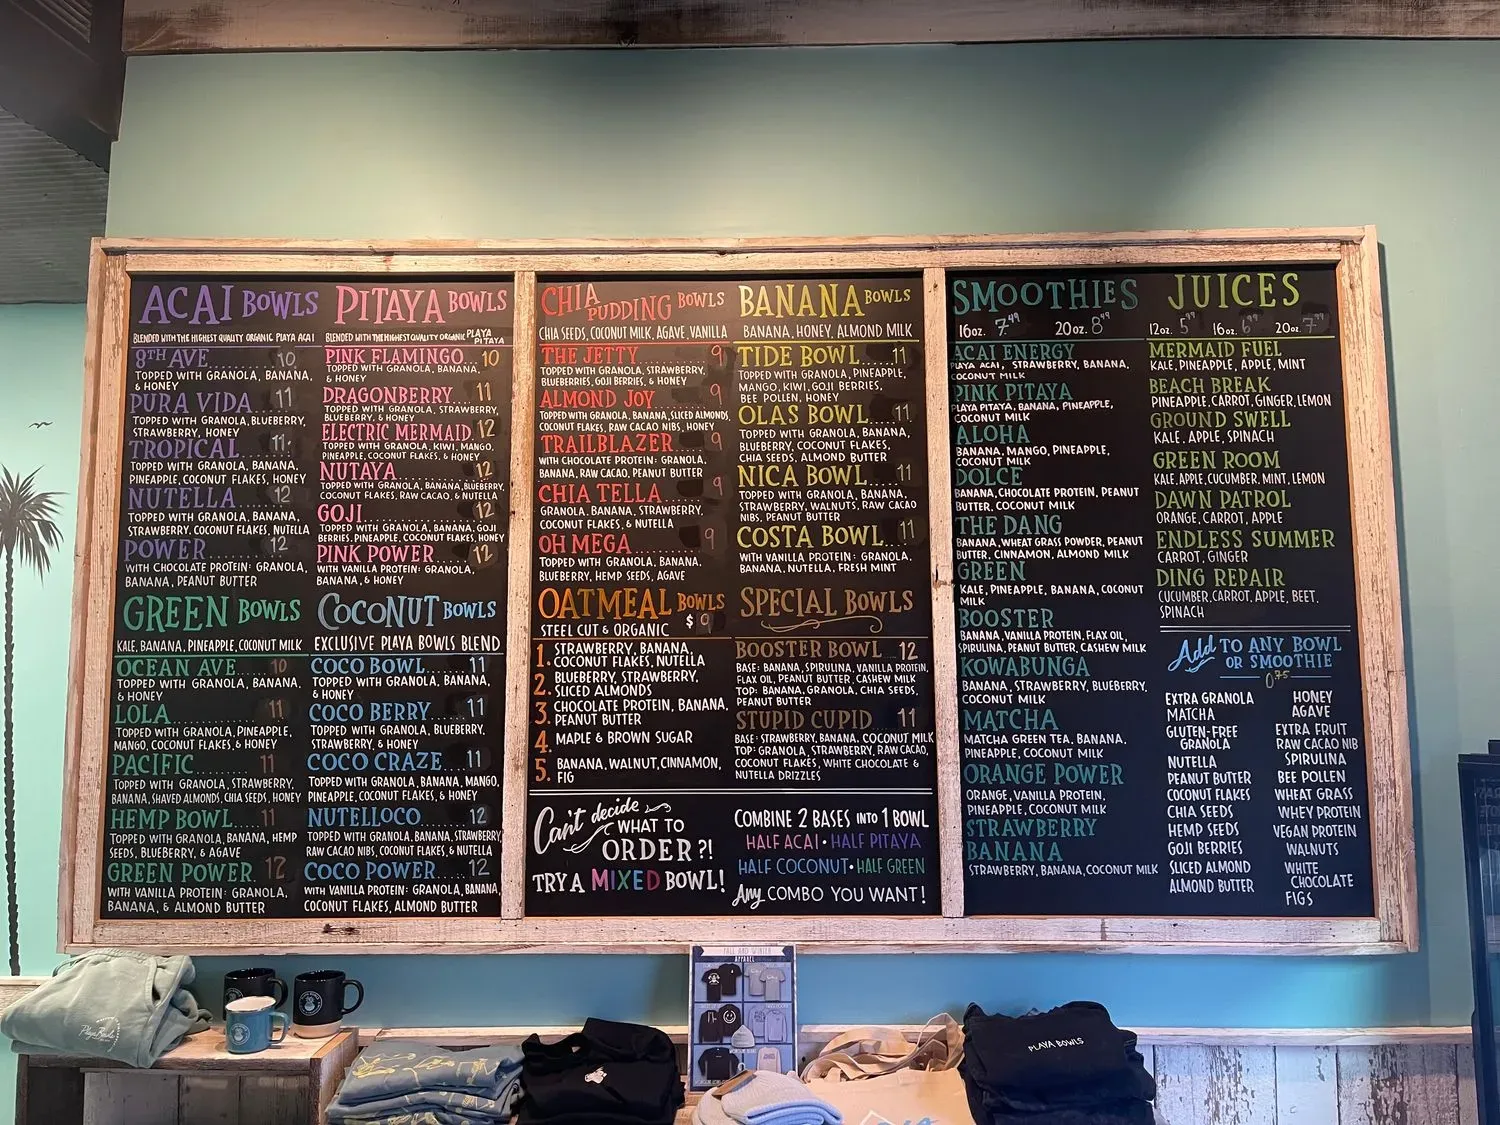 ACAI BOWLS
BLENDED WITH THE HIGHEST QUALITY ORGANIC PLAYA ACAI
8TH AVE 10
TOPPED WITH GRANOLA, BANANA,
& HONEY
PURA VIDA 11
TOPPED WITH GRANOLA, BLUEBERRY,
STRAWBERRY, HONEY
TROPICAL 11
TOPPED WITH GRANOLA, BANANA,
PINEAPPLE, COCONUT FLAKES, HONEY
NUTELLA 12
TOPPED WITH GRANOLA, BANANA,
STRAWBERRY, COCONUT FLAKES, NUTELLA
POWER 12
WITH CHOCOLATE PROTEIN: GRANOLA,
BANANA, PEANUT BUTTER
GREEN BOWLS
KALE, BANANA, PINEAPPLE, COCONUT MILK
OCEAN AVE 10
TOPPED WITH GRANOLA, BANANA,
& HONEY
LOLA 11
TOPPED WITH GRANOLA, PINEAPPLE,
MANGO, COCONUT FLAKES, & HONEY
PACIFIC 11
TOPPED WITH GRANOLA, STRAWBERRY,
BANANA, SHAVED ALMONDS, CHIA SEEDS, HONEY
HEMP BOWL 11
TOPPED WITH GRANOLA, BANANA, HEMP
SEEDS, BLUEBERRY, & AGAVE
GREEN POWER 12
WITH VANILLA PROTEIN: GRANOLA,
BANANA, & ALMOND BUTTER
PITAYA BOWLS
BLENDED WITH THE HIGHEST QUALITY ORGANIC PLAYA PITAYA
PINK FLAMINGO... 10
TOPPED WITH GRANOLA, BANANA,
& HONEY
DRAGONBERRY.... 11
TOPPED WITH GRANOLA, STRAWBERRY,
BLUEBERRY, & HONEY
ELECTRIC MERMAID. 12
TOPPED WITH GRANOLA, KIWI, MANGO,
PINEAPPLE, COCONUT FLAKES, & HONEY
NUTAYA 12
TOPPED WITH GRANOLA, BANANA, BLUEBERRY,
COCONUT FLAKES, RAW CACAO, & NUTELLA
GOJI 12
TOPPED WITH GRANOLA, BANANA, GOJI
BERRIES, PINEAPPLE, COCONUT FLAKES, HONEY
PINK POWER 12
WITH VANILLA PROTEIN: GRANOLA,
BANANA, & HONEY
COCONUT BOWLS
EXCLUSIVE PLAYA BOWLS BLEND
COCO BOWL 11
TOPPED WITH GRANOLA, BANANA,
& HONEY
COCO BERRY 11
TOPPED WITH GRANOLA, BLUEBERRY,
STRAWBERRY, & HONEY
COCO CRAZE 11
TOPPED WITH GRANOLA, BANANA, MANGO,
PINEAPPLE, COCONUT FLAKES, & HONEY
NUTELLOCO 12
TOPPED WITH GRANOLA, BANANA, STRAWBERRY,
RAW CACAO NIBS, COCONUT FLAKES, & NUTELLA
COCO POWER 12
WITH VANILLA PROTEIN: GRANOLA, BANANA,
COCONUT FLAKES, ALMOND BUTTER
CHIA PUDDING BOWLS
CHIA SEEDS, COCONUT MILK, AGAVE, VANILLA
THE JETTY 9
TOPPED WITH GRANOLA, STRAWBERRY,
BLUEBERRIES, GOJI BERRIES, & HONEY
ALMOND JOY 9
TOPPED WITH GRANOLA, BANANA, SLICED ALMONDS,
COCONUT FLAKES, RAW CACAO NIBS, HONEY
TRAILBLAZER 9
WITH CHOCOLATE PROTEIN: GRANOLA,
BANANA, RAW CACAO, PEANUT BUTTER
CHIA TELLA 9
GRANOLA, BANANA, STRAWBERRY,
COCONUT FLAKES, & NUTELLA
OH MEGA 9
TOPPED WITH GRANOLA, BANANA,
BLUEBERRY, HEMP SEEDS, AGAVE
OATMEAL BOWLS
STEEL CUT & ORGANIC $9
1. STRAWBERRY, BANANA,
COCONUT FLAKES, NUTELLA
2. BLUEBERRY, STRAWBERRY,
SLICED ALMONDS
3. CHOCOLATE PROTEIN, BANANA,
PEANUT BUTTER
4. MAPLE & BROWN SUGAR
5. BANANA, WALNUT, CINNAMON,
FIG
BANANA BOWLS
BANANA, HONEY, ALMOND MILK
TIDE BOWL 11
TOPPED WITH GRANOLA, PINEAPPLE,
MANGO, KIWI, GOJI BERRIES,
BEE POLLEN, HONEY
OLAS BOWL 11
TOPPED WITH GRANOLA, BANANA,
BLUEBERRY, COCONUT FLAKES,
CHIA SEEDS, ALMOND BUTTER
NICA BOWL 11
TOPPED WITH GRANOLA, BANANA,
STRAWBERRY, WALNUTS, RAW CACAO
NIBS, PEANUT BUTTER
COSTA BOWL 11
WITH VANILLA PROTEIN: GRANOLA,
BANANA, NUTELLA, FRESH MINT
SPECIAL BOWLS
BOOSTER BOWL 12
BASE: BANANA, SPIRULINA, VANILLA PROTEIN,
FLAX OIL, PEANUT BUTTER, CASHEW MILK
TOP: BANANA, GRANOLA, CHIA SEEDS,
PEANUT BUTTER
STUPID CUPID 11
BASE: STRAWBERRY, BANANA, COCONUT MILK
TOP: GRANOLA, STRAWBERRY, RAW CACAO,
COCONUT FLAKES, WHITE CHOCOLATE &
NUTELLA DRIZZLES
Can't decide
WHAT TO
ORDER?!
TRY A MIXED BOWL!
COMBINE 2 BASES INTO 1 BOWL
HALF ACAI • HALF PITAYA
HALF COCONUT • HALF GREEN
Any COMBO YOU WANT!
SMOOTHIES
16oz. 7.49 20oz. 8.49
ACAI ENERGY
PLAYA ACAI, STRAWBERRY, BANANA,
COCONUT MILK
PINK PITAYA
PLAYA PITAYA, BANANA, PINEAPPLE,
COCONUT MILK
ALOHA
BANANA, MANGO, PINEAPPLE,
COCONUT MILK
DOLCE
BANANA, CHOCOLATE PROTEIN, PEANUT
BUTTER, COCONUT MILK
THE DANG
BANANA, WHEAT GRASS POWDER, PEANUT
BUTTER, CINNAMON, ALMOND MILK
GREEN
KALE, PINEAPPLE, BANANA, COCONUT
MILK
BOOSTER
BANANA, VANILLA PROTEIN, FLAX OIL,
SPIRULINA, PEANUT BUTTER, CASHEW MILK
KOWABUNGA
BANANA, STRAWBERRY, BLUEBERRY,
COCONUT MILK
MATCHA
MATCHA GREEN TEA, BANANA,
PINEAPPLE, COCONUT MILK
ORANGE POWER
ORANGE, VANILLA PROTEIN,
PINEAPPLE, COCONUT MILK
STRAWBERRY
BANANA
STRAWBERRY, BANANA, COCONUT MILK
JUICES
12oz. 5.49 16oz. 6.49 20oz. 7.49
MERMAID FUEL
KALE, PINEAPPLE, APPLE, MINT
BEACH BREAK
PINEAPPLE, CARROT, GINGER, LEMON
GROUND SWELL
KALE, APPLE, SPINACH
GREEN ROOM
KALE, APPLE, CUCUMBER, MINT, LEMON
DAWN PATROL
ORANGE, CARROT, APPLE
ENDLESS SUMMER
CARROT, GINGER
DING REPAIR
CUCUMBER, CARROT, APPLE, BEET,
SPINACH
Add TO ANY BOWL
OR SMOOTHIE
0.75
EXTRA GRANOLA
MATCHA
GLUTEN-FREE
GRANOLA
NUTELLA
PEANUT BUTTER
COCONUT FLAKES
CHIA SEEDS
HEMP SEEDS
GOJI BERRIES
SLICED ALMOND
ALMOND BUTTER
HONEY
AGAVE
EXTRA FRUIT
RAW CACAO NIB
SPIRULINA
BEE POLLEN
WHEAT GRASS
WHEY PROTEIN
VEGAN PROTEIN
WALNUTS
WHITE
CHOCOLATE
FIGS
FALL AND WINTER
APPAREL
Playa Bowls
PLAYA BOWLS